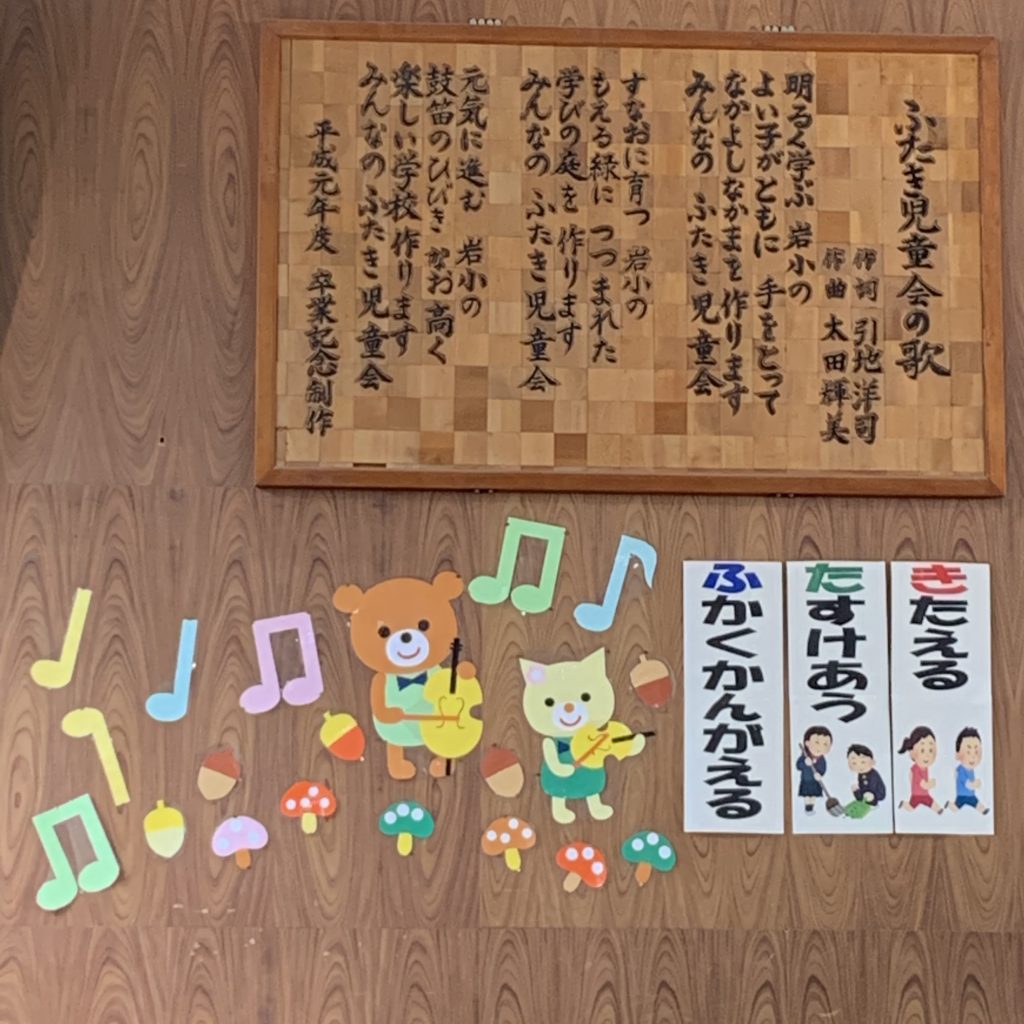 ふたき児童会の歌
作詞 引地洋司
作曲 太田輝美
明るく学ぶ 岩小の
よい子がともに 手をとって
なかよしなかまを 作ります
みんなの ふたき児童会
すなおに育つ 岩小の
もえる緑に つつまれた
学びの庭を 作ります
みんなの ふたき児童会
元気に進む 岩小の
鼓笛のひびき なお高く
楽しい学校 作ります
みんなの ふたき児童会
平成元年度 卒業記念制作
きたえる
たすけあう
ふかくかんがえる